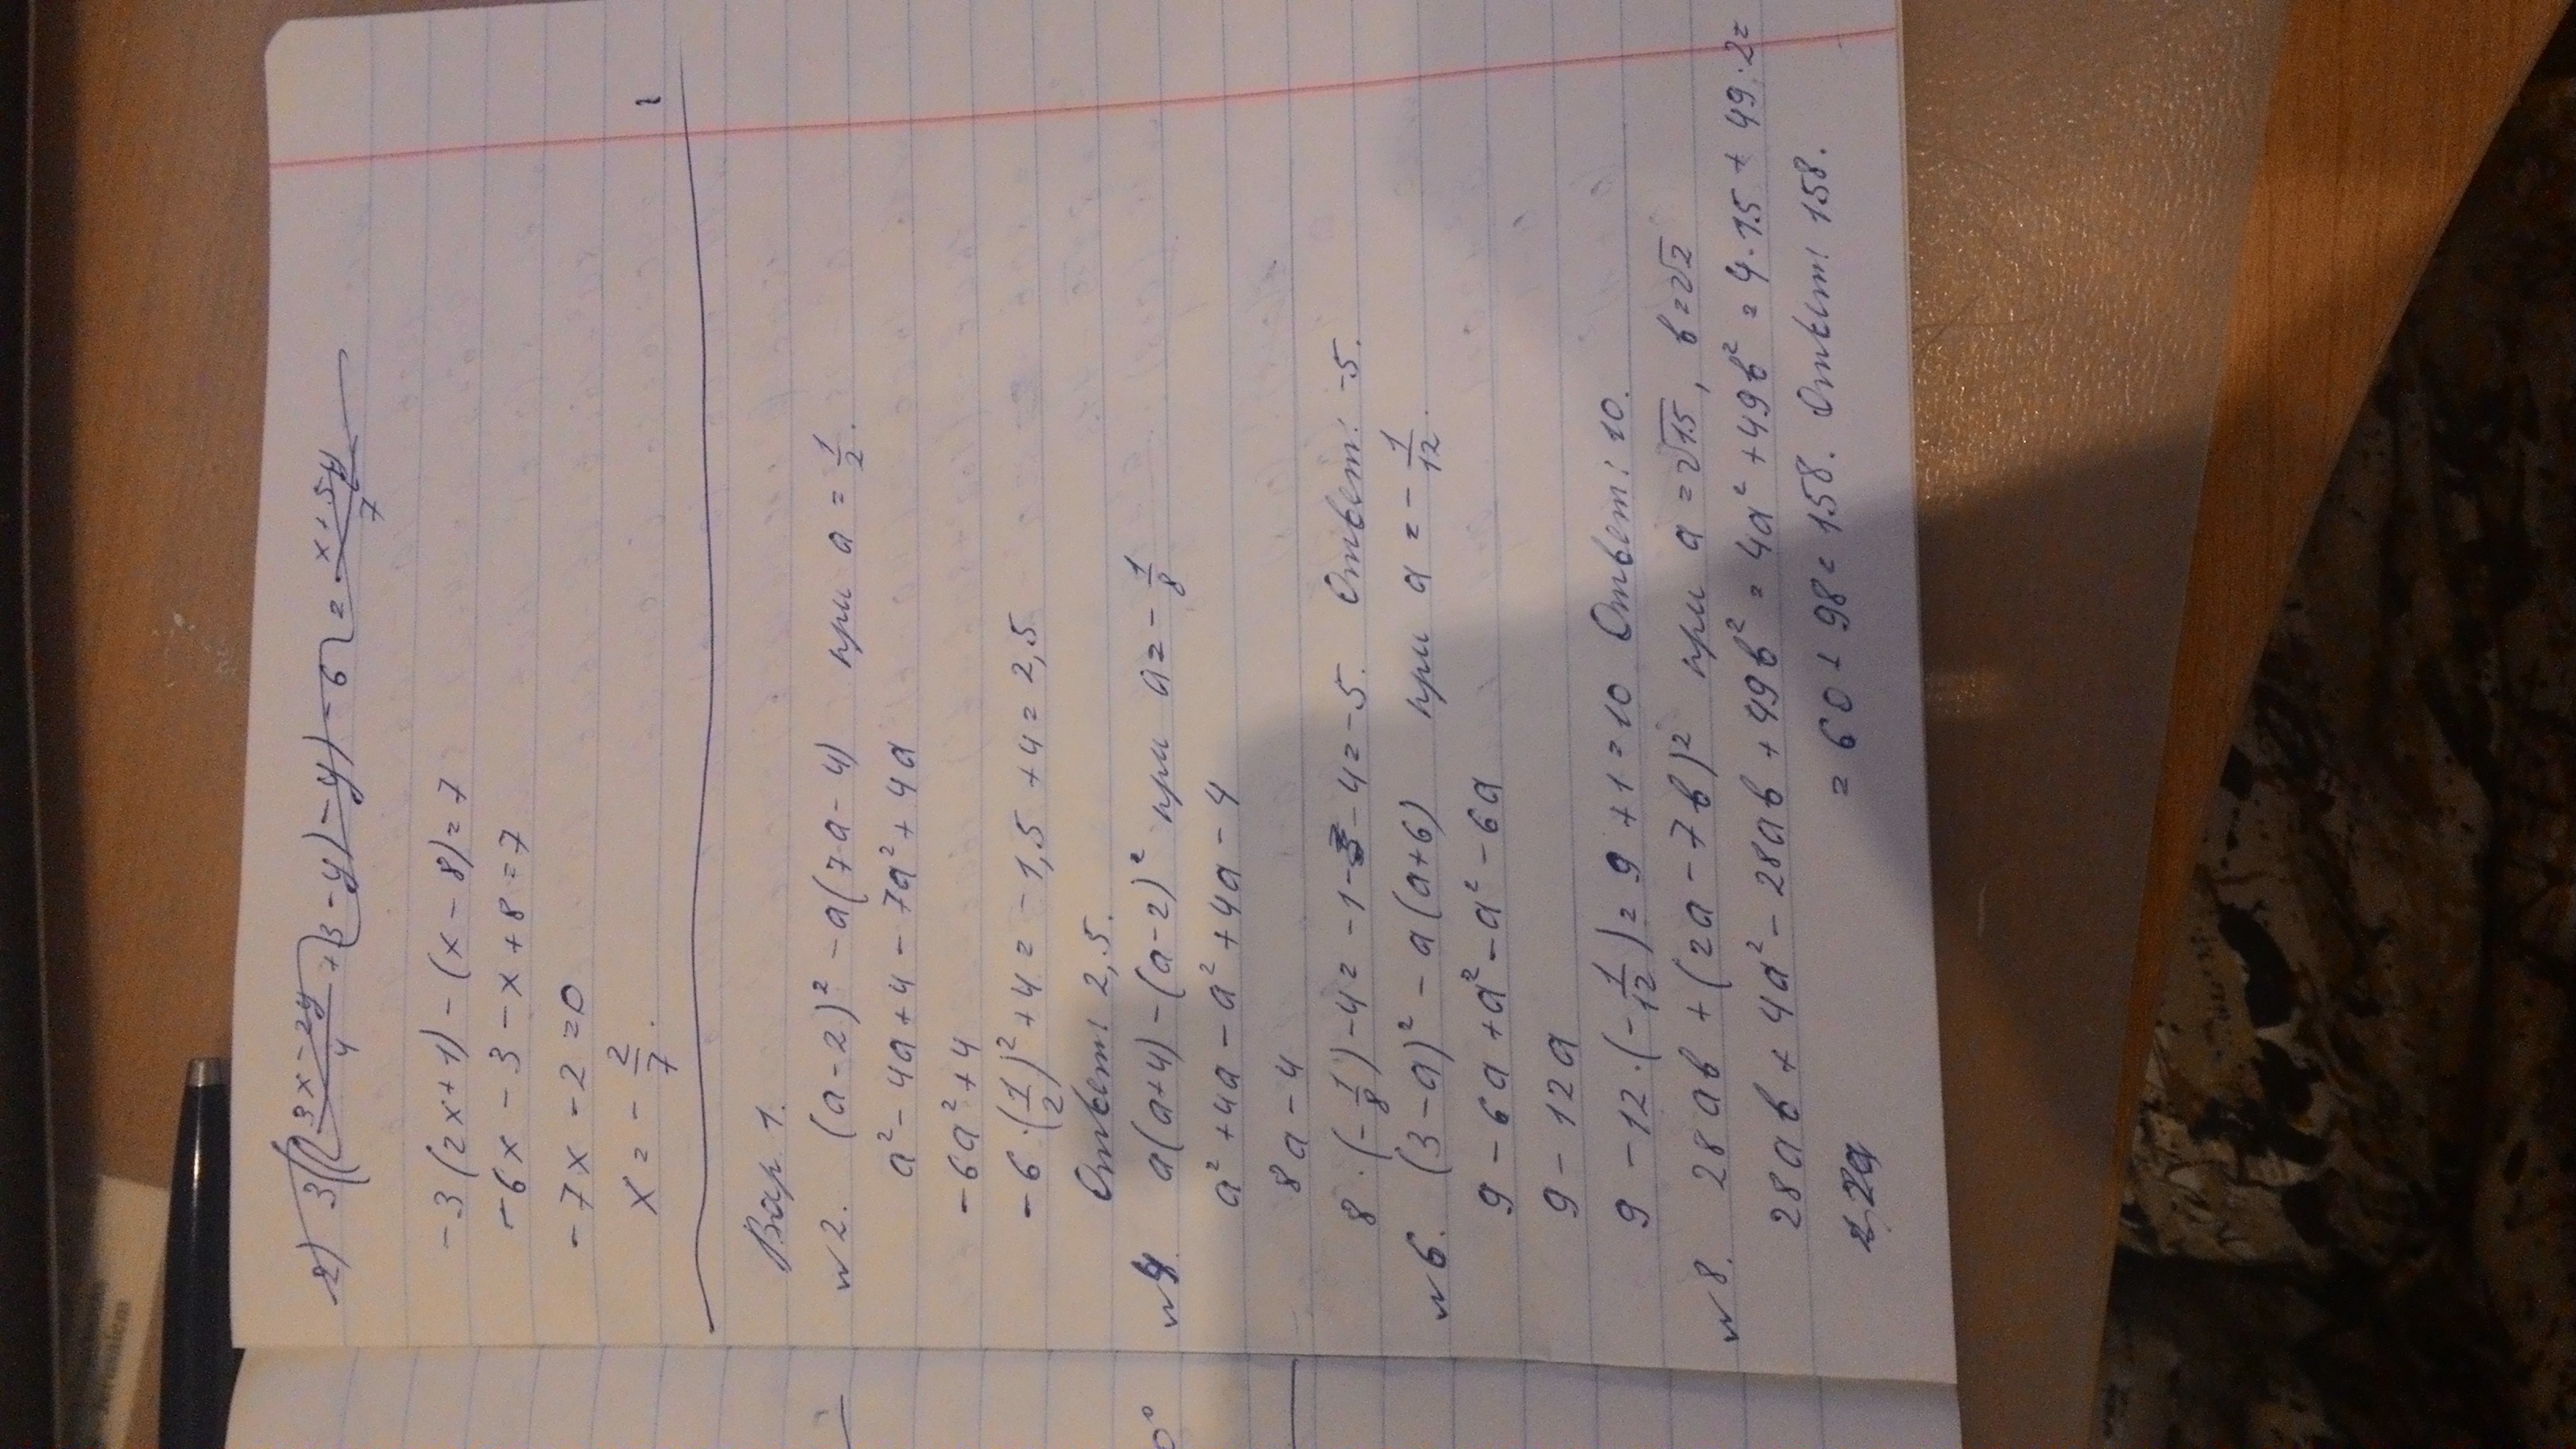 2) 3((3x-2y)/4 + 3 - y) - y) - 6 = (x+5y)/7
-3(2x+1) - (x-8) = 7
-6x - 3 - x + 8 = 7
-7x - 2 = 0
x = -2/7.
Вар 1.
№2. (a-2)² - a(7a-4) при a = 1/2.
a² - 4a + 4 - 7a² + 4a
-6a² + 4
-6·(1/2)² + 4 = -1,5 + 4 = 2,5
Ответ: 2,5.
№4 a(a+4) - (a-2)² при a = -1/8
a² + 4a - a² + 4a - 4
8a - 4
8·(-1/8) - 4 = -1 - 4 = -5. Ответ: -5.
№6. (3-a)² - a(a+6) при a = -1/12.
9 - 6a + a² - a² - 6a
9 - 12a
9 - 12·(-1/12) = 9 + 1 = 10 Ответ: 10.
№8. 28ab + (2a - 7b)² при a = √15, b = √2
28ab + 4a² - 28ab + 49b² = 4a² + 49b² = 4·15 + 49·2 =
= 60 + 98 = 158. Ответ: 158.